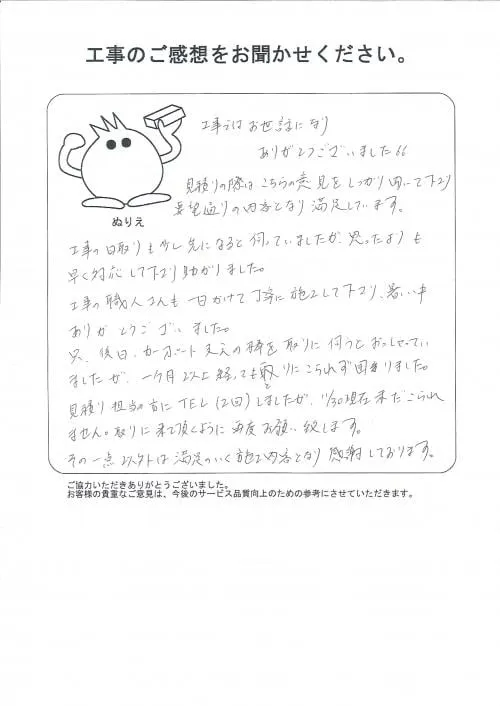 工事のご感想をお聞かせください。
ぬりえ
工事ではお世話になり
ありがとうございました
見積りの際はこちらの意見をしっかり聞いて下さり
要望通りの内容となり満足しています。
工事の日取りも少し先になると伺っていましたが、思ったよりも
早く対応して下さり助かりました。
工事の職人さんも一日かけて丁寧に施工して下さり、暑い中
ありがとうございました。
只、後日、カーポート支えの棒を取りに伺うとおっしゃってい
ましたが、一ヶ月以上経っても取りにこられず困りました。
見積り担当の方にTEL(2回)しましたが、11/30現在未だこられ
ません。取りに来て頂くように再度お願い致します。
その一点以外は満足のいく施工内容となり感謝しております。
ご協力いただきありがとうございました。
お客様の貴重なご意見は、今後のサービス品質向上のための参考にさせていただきます。